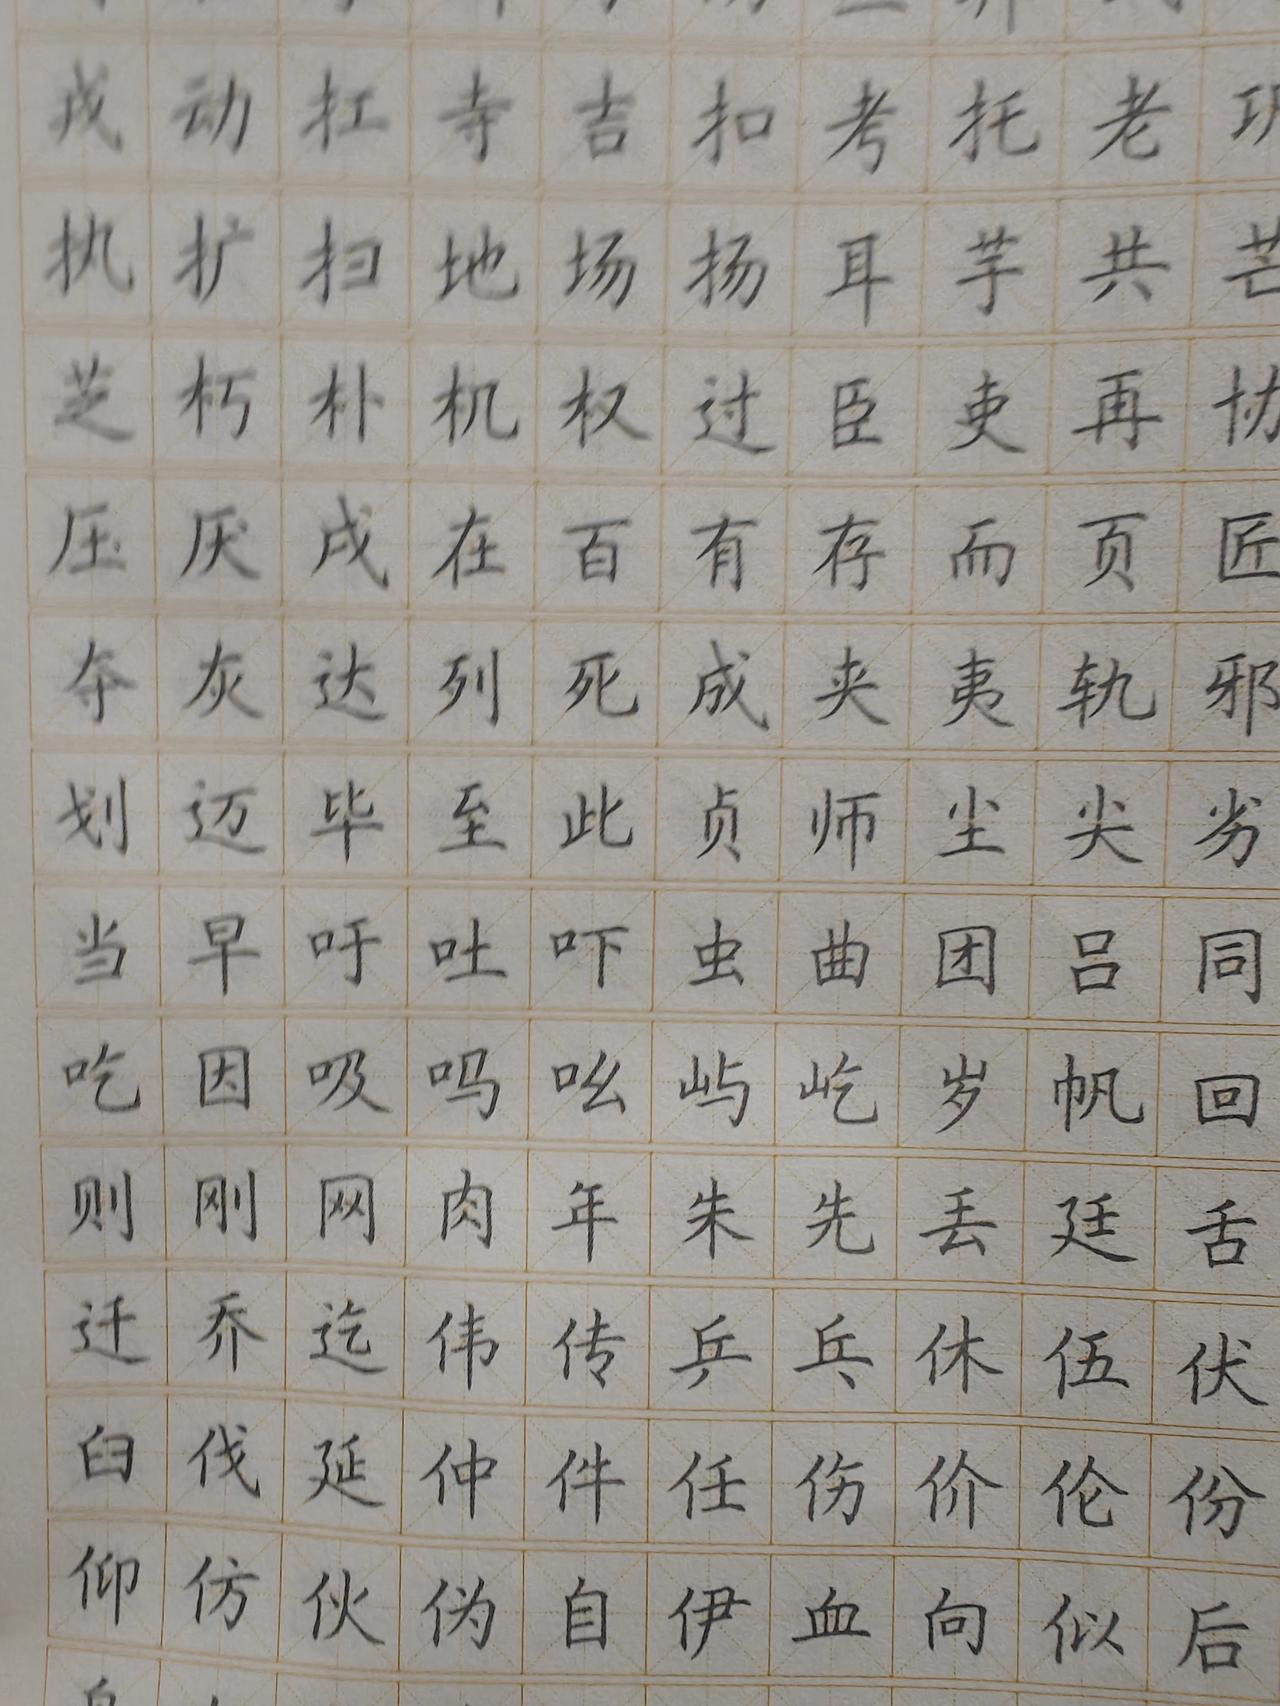 戎动扛寺吉扣考托老巩
执扩扫地场扬耳芋共芒
芝朽朴机权过臣吏再协
压厌戌在百有存而页匠
夺灰达列死成夹夷轨邪
划迈毕至此贞师尘尖劣
当早吁吐吓虫曲团吕同
吃因吸吗吆屿屹岁帆回
则刚网肉年朱先丢廷舌
迁乔迄伟传乒乓休伍伏
臼伐延仲件任伤价伦份
仰仿伙伪自伊血向似后